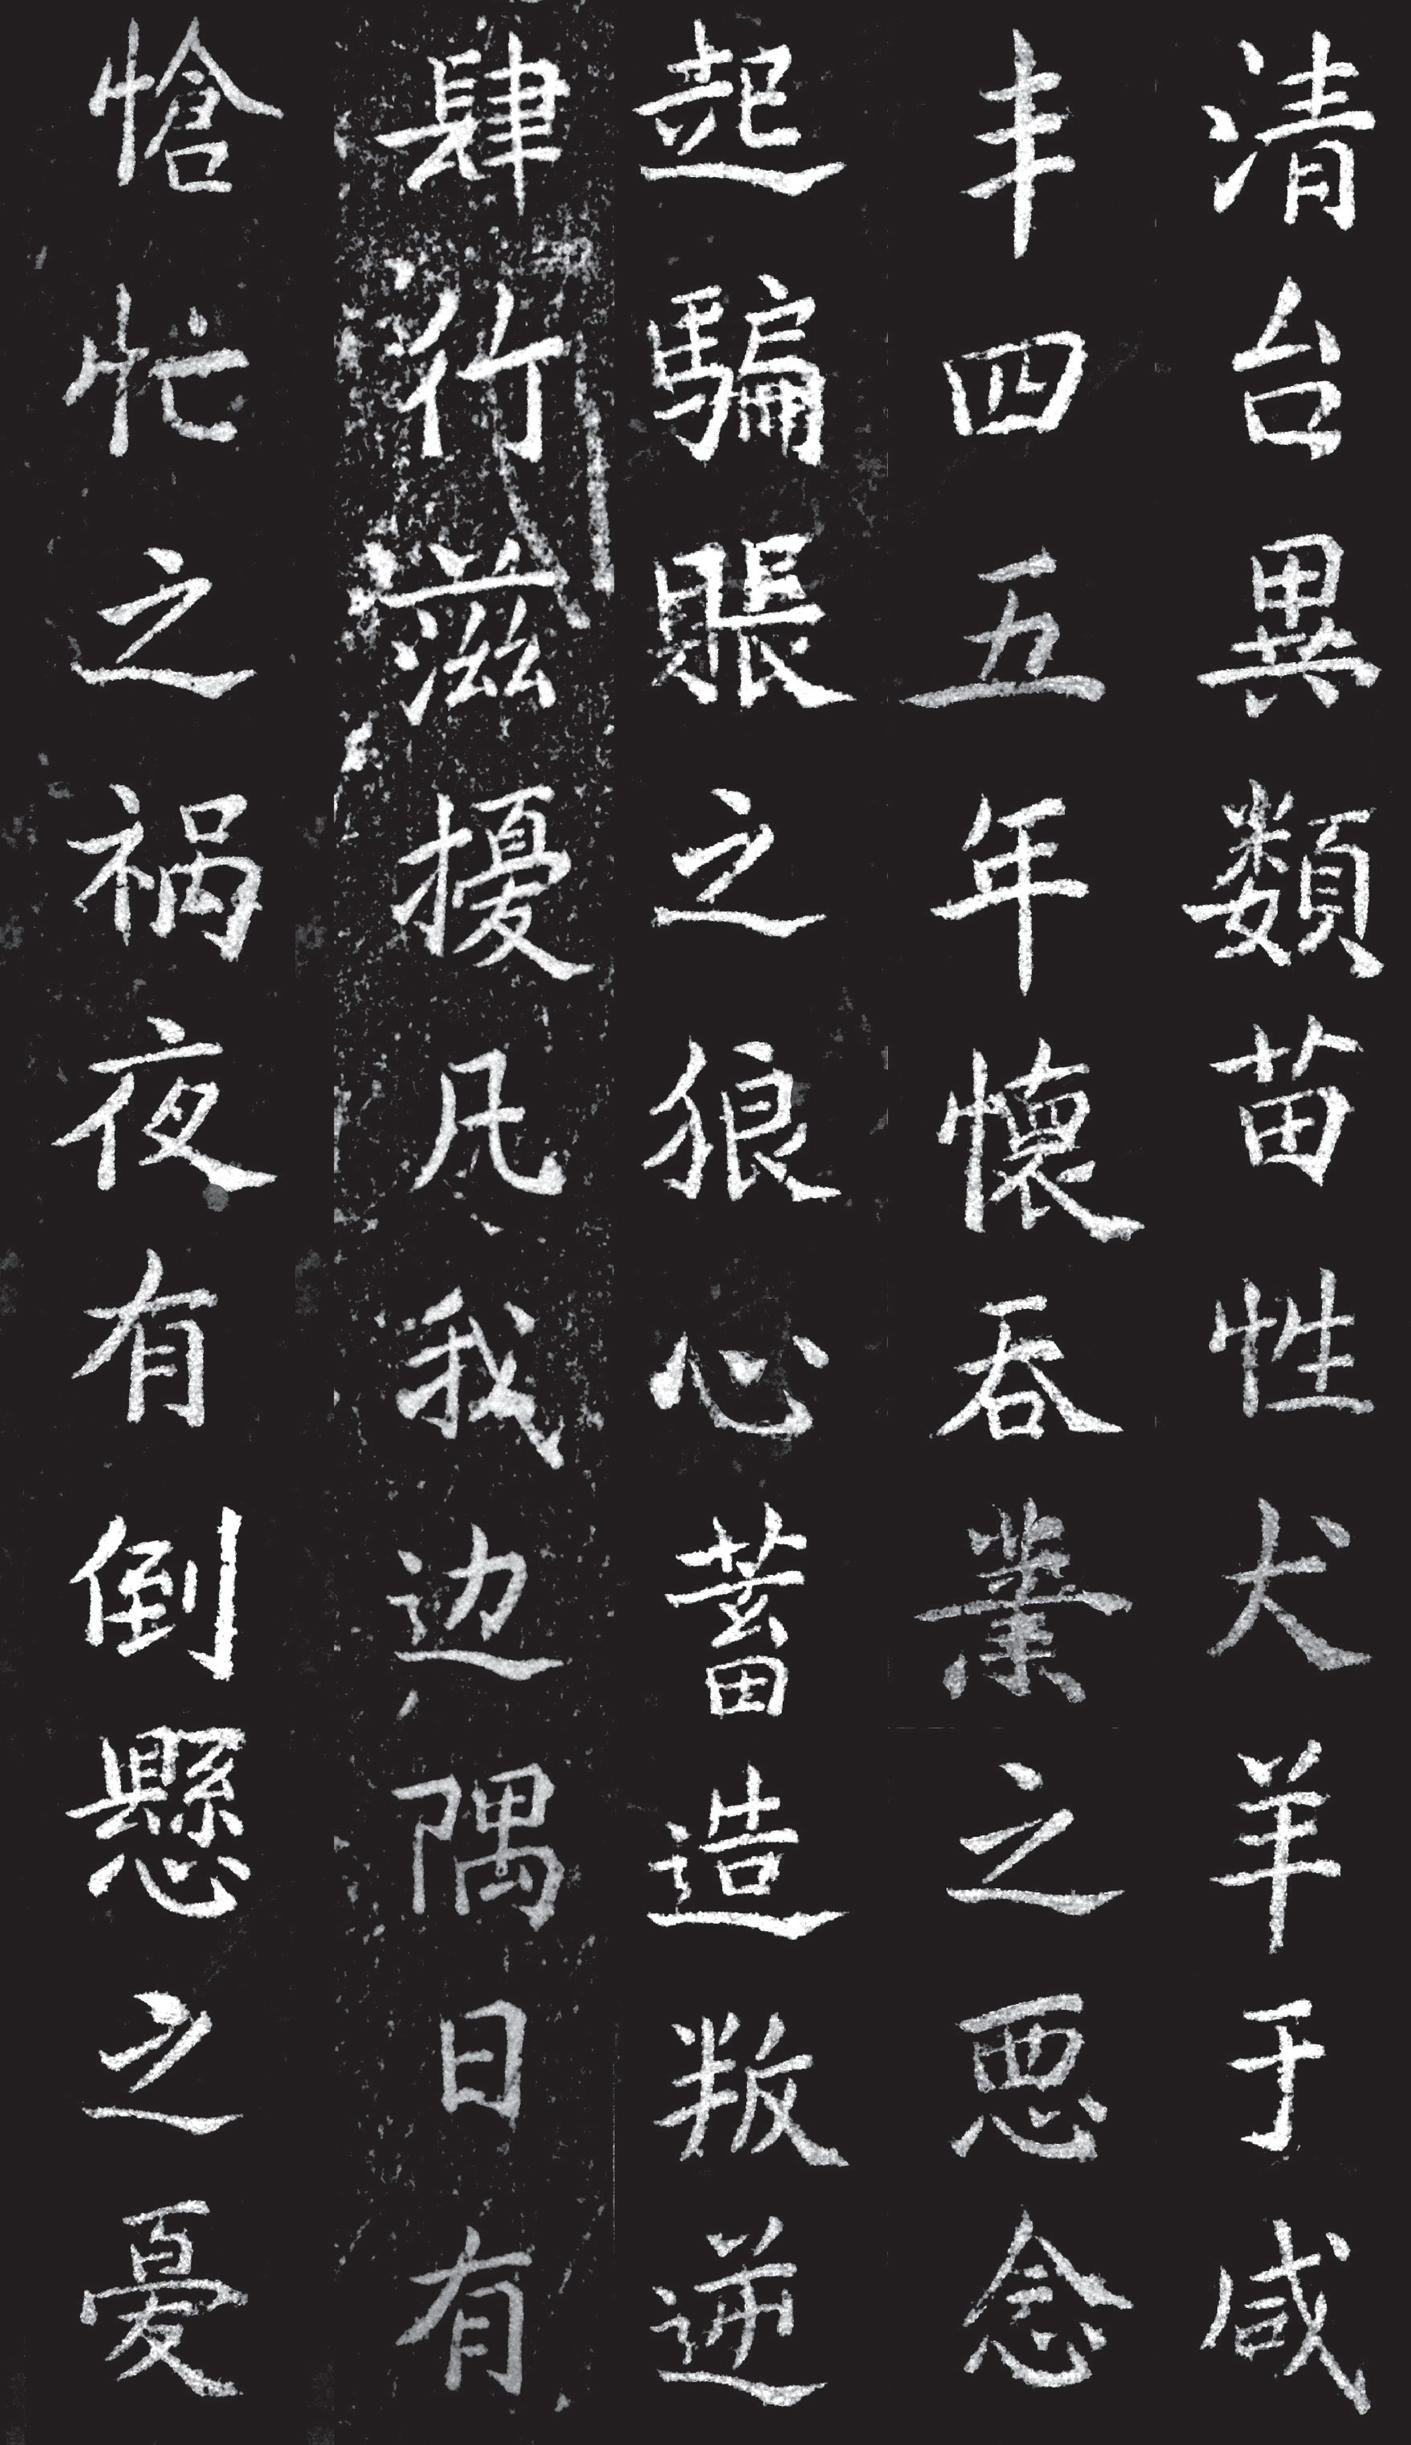 清台異類苗性犬羊于咸
丰四五年懷吞業之恶念
起騙賬之狼心蓄造叛逆
肆行滋擾凡我边隅日有
愴忙之禍夜有倒懸之憂